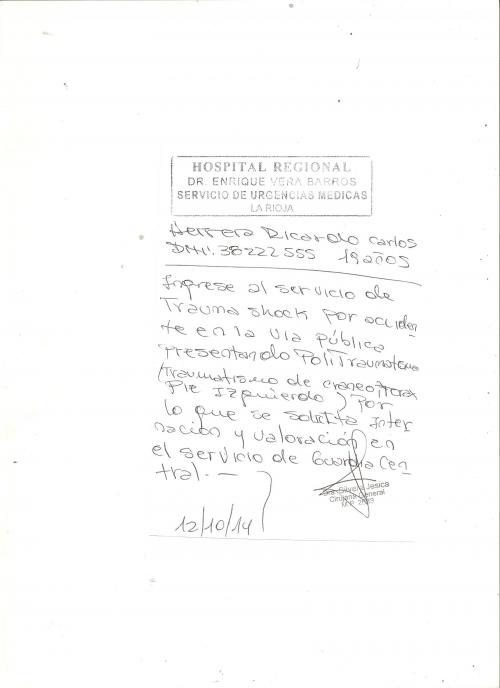 HOSPITAL REGIONAL
DR. ENRIQUE VERA BARROS
SERVICIO DE URGENCIAS MEDICAS
LA RIOJA
Herrera Ricardo Carlos
DNI. 38222555 19 años
Ingrese al servicio de
Trauma shock por acciden-
te en la via pública
presentando PoliTraumatismo
(traumatismo de craneo,
Pie Izquierdo) por
lo que se solicita Inter
nación y valoración en
el servicio de Guardia Cen
tral. —
Dra. Silvera Jesica
Cirujana General
12/10/14